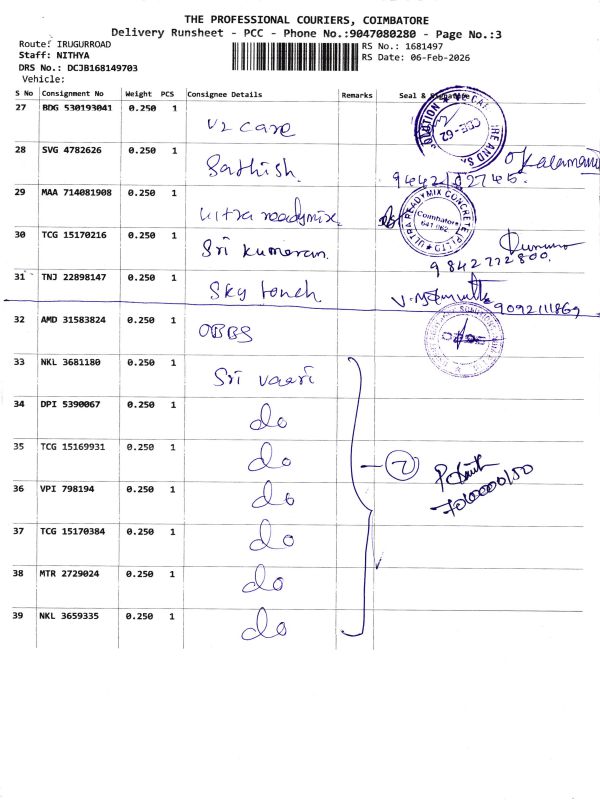 THE PROFESSIONAL COURIERS, COIMBATORE
Delivery Runsheet - PCC - Phone No.:9047080280 - Page No.:3
Route: IRUGURROAD
RS No.: 1681497
Staff: NITHYA
RS Date: 06-Feb-2026
DRS No.: DCJB168149703
Vehicle:
S No Consignment No Weight PCS Consignee Details Remarks Seal &
27 BDG 530193041 0.250 1 V2 care
28 SVG 4782626 0.250 1 Sathish.
29 MAA 714081908 0.250 1 Ultra readymix
ULTRA READYMIX CONCRETE (P) LTD
Coimbatore
30 TCG 15170216 0.250 1 Sri Kumeran.
9842772800.
31 TNJ 22898147 0.250 1 Sky touch
9092111869
32 AMD 31583824 0.250 1 OBBS
33 NKL 3681180 0.250 1 Sri vaari
34 DPI 5390067 0.250 1 do
35 TCG 15169931 0.250 1 do
7
36 VPI 798194 0.250 1 do
37 TCG 15170384 0.250 1 do
38 MTR 2729024 0.250 1 do
39 NKL 3659335 0.250 1 do